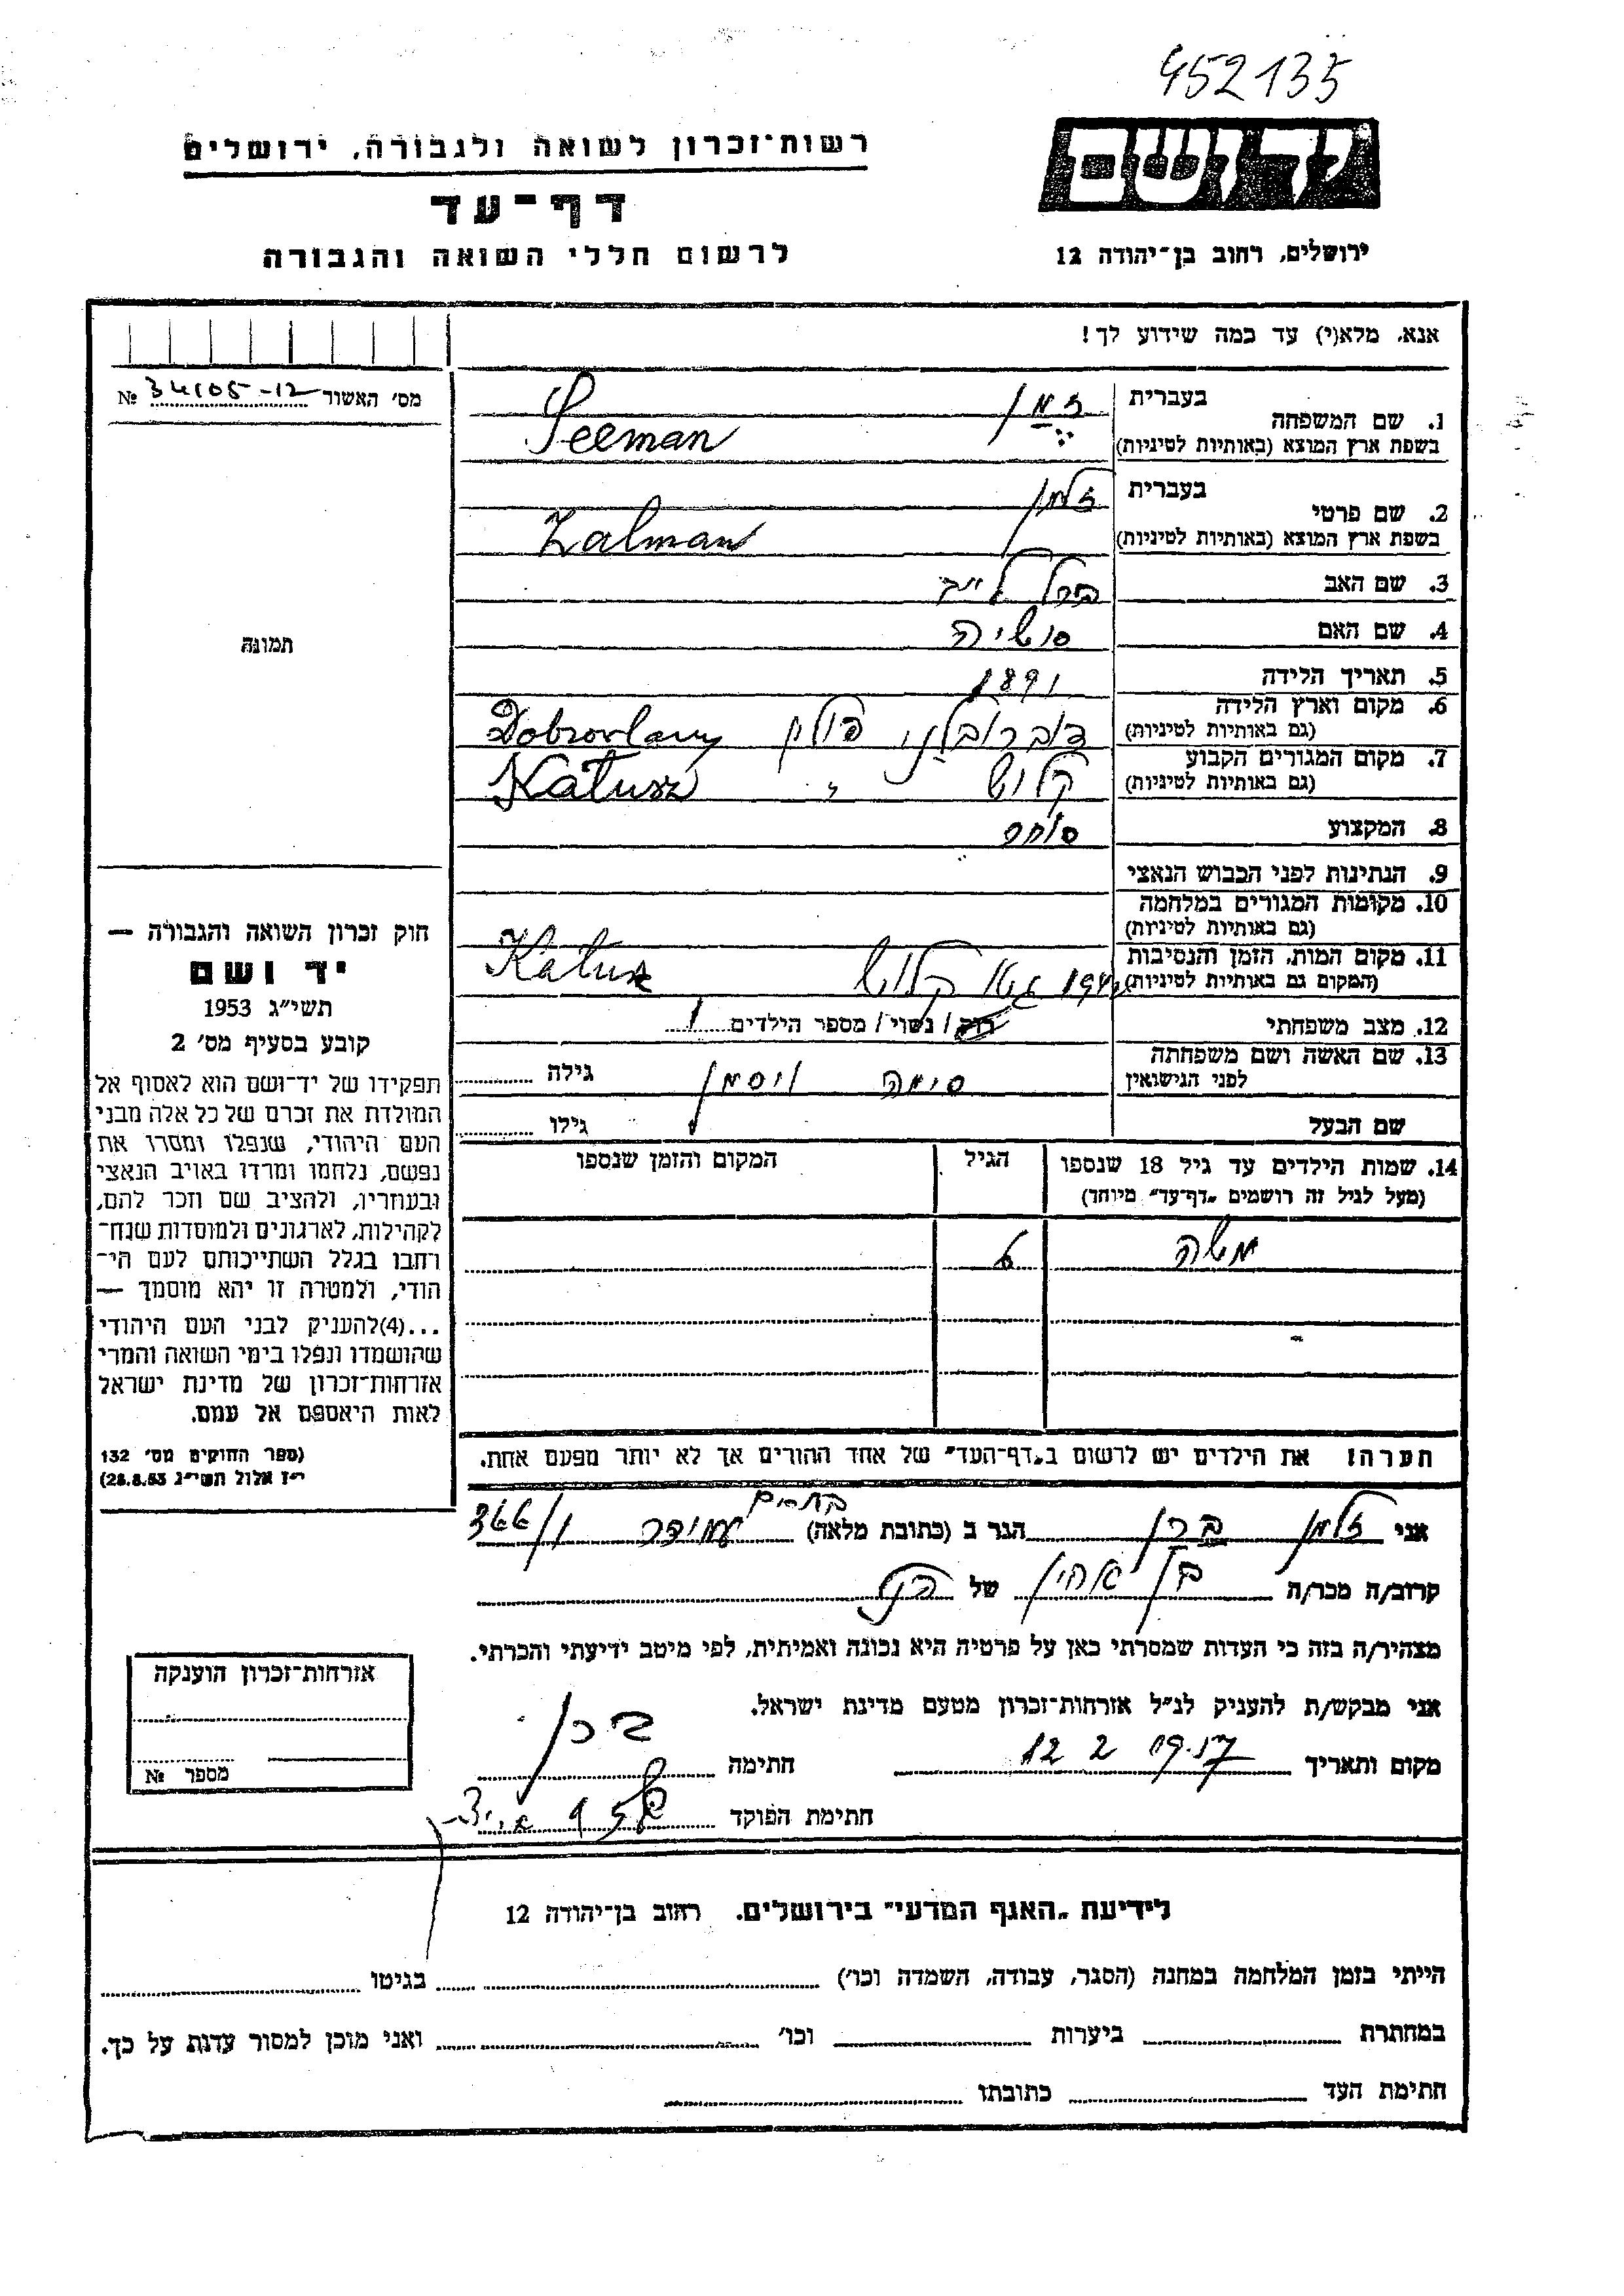 452135
רשות־זכרון לשואה ולגבורה, ירושלים
דף־עד
לרשום חללי השואה והגבורה
יד ושם
ירושלים, רחוב בן־יהודה 12
אנא, מלא(י) עד כמה שידוע לך!
מס׳ האשור 34105-12 №
תמונה
1. שם המשפחה
בעברית זימן
בשפת ארץ המוצא (באותיות לטיניות) Seeman
2. שם פרטי
בעברית זלמן
בשפת ארץ המוצא (באותיות לטיניות) Zalman
3. שם האב ברל לייב
4. שם האם
5. תאריך הלידה 1891
6. מקום וארץ הלידה
(גם באותיות לטיניות) דוברובלני פולין Dobrovlany
7. מקום המגורים הקבוע
(גם באותיות לטיניות) קלוש " Kalusz
8. המקצוע סוחר
9. הנתינות לפני הכבוש הנאצי
10. מקומות המגורים במלחמה
(גם באותיות לטיניות)
11. מקום המות, הזמן והנסיבות
(המקום גם באותיות לטיניות) גטו קלוש Kalusz
12. מצב משפחתי רוק / נשוי / מספר הילדים 1
13. שם האשה ושם משפחתה
לפני הנישואין סימה ויסמן גילה
שם הבעל גילו
14. שמות הילדים עד גיל 18 שנספו
(מעל לגיל זה רושמים „דף־עד״ מיוחד)
הגיל
המקום והזמן שנספו
משה
הערה! את הילדים יש לרשום ב„דף־העד״ של אחד ההורים אך לא יותר מפעם אחת.
חוק זכרון השואה והגבורה —
יד ושם
תשי״ג 1953
קובע בסעיף מס׳ 2
תפקידו של יד־ושם הוא לאסוף אל
המולדת את זכרם של כל אלה מבני
העם היהודי, שנפלו ומסרו את
נפשם, נלחמו ומרדו באויב הנאצי
ובעוזריו, ולהציב שם וזכר להם,
לקהילות, לארגונים ולמוסדות שנח־
רחבו בגלל השתייכותם לעם הי־
הודי, ולמטרה זו יהא מוסמך —
...(4)להעניק לבני העם היהודי
שהושמדו ונפלו בימי השואה והמרי
אזרחות־זכרון של מדינת ישראל
לאות היאספם אל עמם.
(ספר החוקים מס׳ 132
י״ז אלול תשי״ג 28.8.53)
אני זלמן ברן הגר ב (כתובת מלאה) בת־ים עמידר
קרוב/ה מכר/ה בן אחין של הנ״ל
מצהיר/ה בזה כי העדות שמסרתי כאן על פרטיה היא נכונה ואמיתית, לפי מיטב ידיעתי והכרתי.
אני מבקש/ת להעניק לנ״ל אזרחות־זכרון מטעם מדינת ישראל.
מקום ותאריך 12 2 19.57 חתימה ברן
חתימת הפוקד
אזרחות־זכרון הוענקה
מספר №
לידיעת „האגף המדעי״ בירושלים. רחוב בן־יהודה 12
הייתי בזמן המלחמה במחנה (הסגר, עבודה, השמדה וכו׳) בגיטו
במחתרת ביערות וכו׳ ואני מוכן למסור עדות על כך.
חתימת העד כתובתו